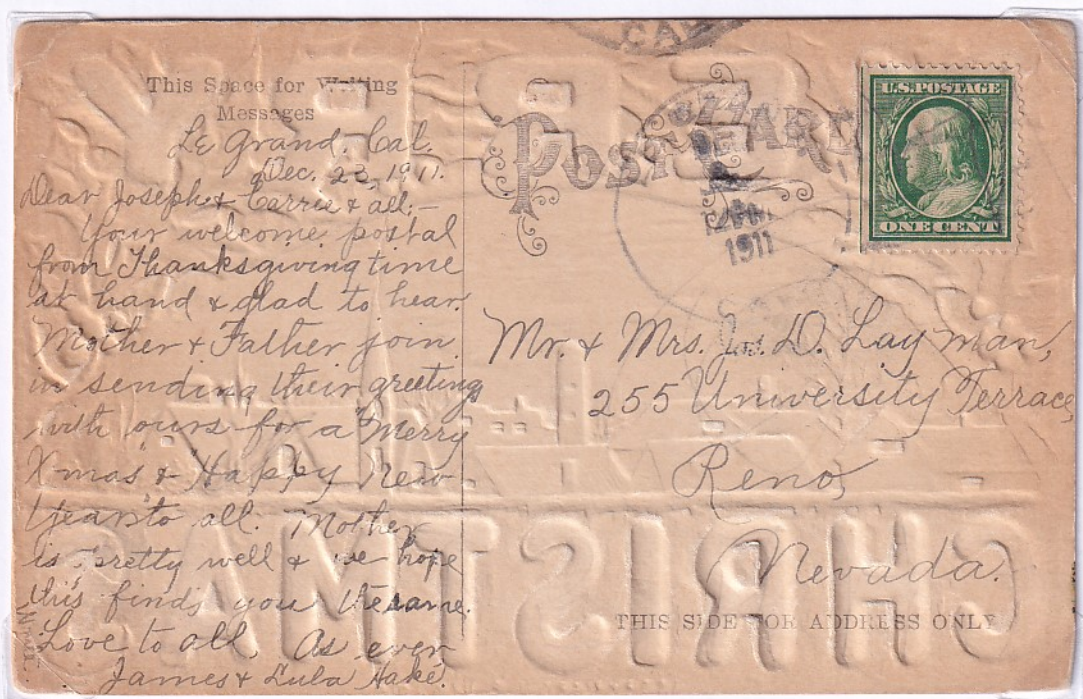 This Space for Writing
Messages
Le Grand, Cal.
Dec. 23, 1911.
Dear Joseph & Carrie & all:-
Your welcome postal
from Thanksgiving time
at hand & glad to hear.
Mother & Father join
in sending their greetings
with ours for a "Merry
Xmas & Happy New
Year" to all. Mother
is pretty well & we hope
this finds you the same.
Love to all, As ever
James & Lula Hake.
CAL
POST CARD
PM
1911
U.S. POSTAGE
ONE CENT
Mr. & Mrs. Jos. D. Layman,
255 University Terrace,
Reno,
Nevada.
CHRISTMAS
THIS SIDE FOR ADDRESS ONLY